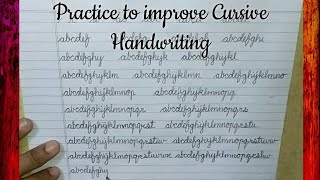 Practice to improve Cursive
Handwriting
abcdef
abcdefghij abcdefghijk abcdefghijkl
abcdefghijklm abcdefghijklmn abcdefghijklmno
abcdefghijklmnop abcdefghijklmnopq
abcdefghijklmnopqr abcdefghijklmnopqrs
abcdefghijklmnopqrst abcdefghijklmnopqrstu
abcdefghijklmnopqrstuv abcdefghijklmnopqrstuvw
abcdefghij